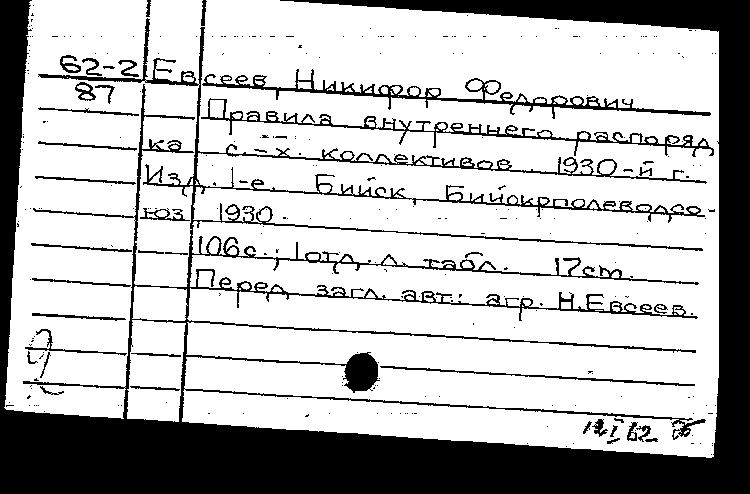 62-2 Евсеев, Никифор Федорович
87
Правила внутреннего распоряд
ка с.-х. коллективов. 1930-й г.
Изд. 1-е. Бийск, Бийокрполеводсо-
юз, 1930.
106с.; 1отд. л. табл. 17cm.
Перед загл. авт.: агр. Н.Евсеев.
12 I 62